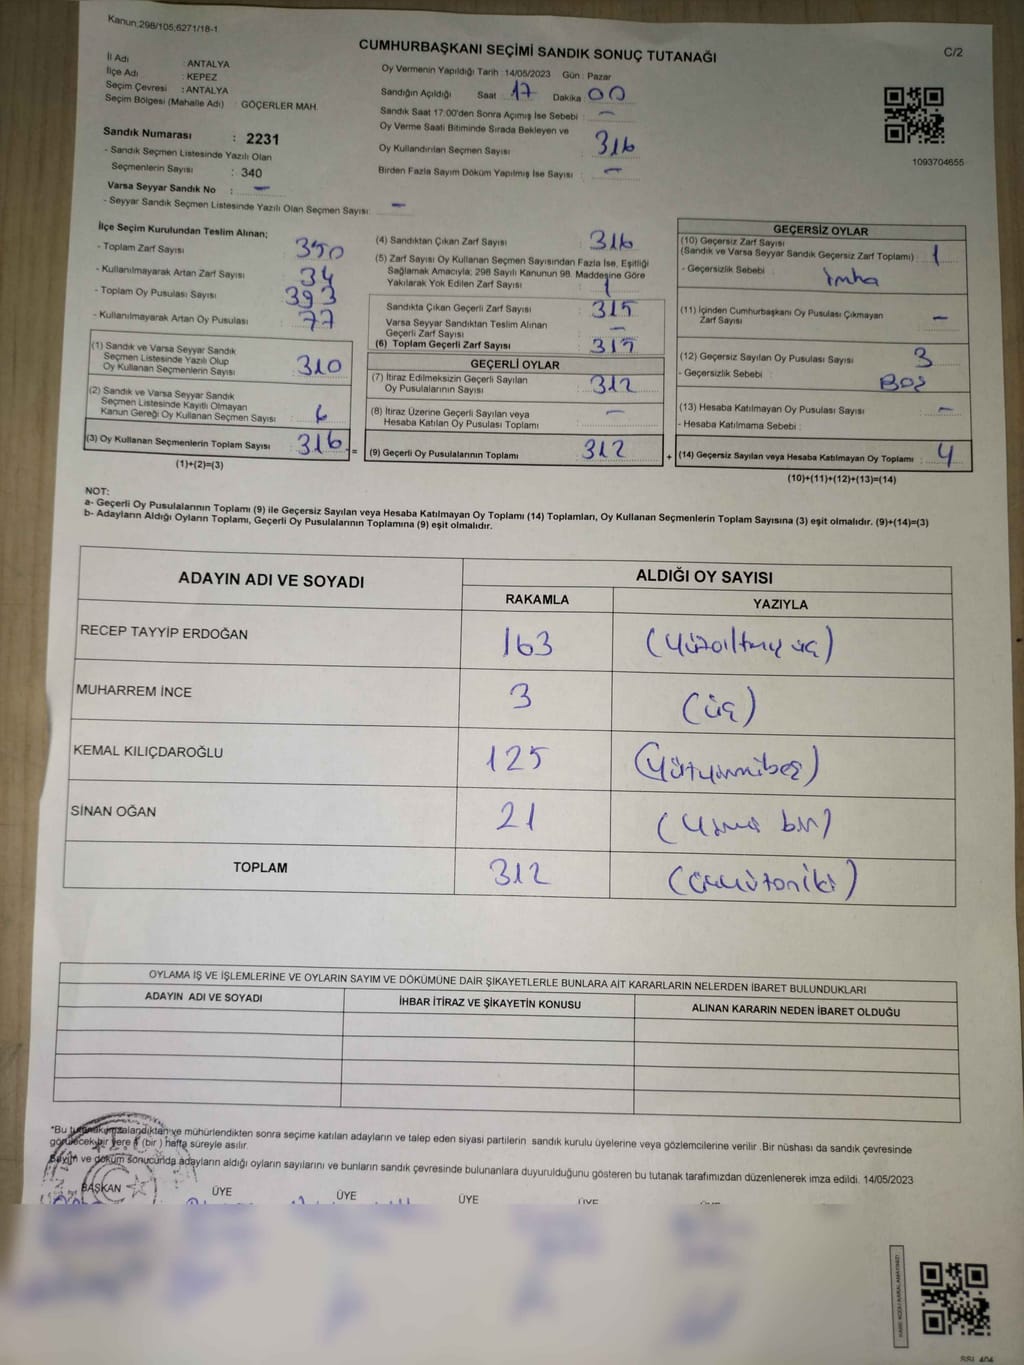 Kanun:298/105,6271/18-1
C/2
CUMHURBAŞKANI SEÇİMİ SANDIK SONUÇ TUTANAĞI
İl Adı : ANTALYA
İlçe Adı : KEPEZ
Seçim Çevresi : ANTALYA
Seçim Bölgesi (Mahalle Adı) : GÖÇERLER MAH.
Sandık Numarası : 2231
- Sandık Seçmen Listesinde Yazılı Olan
Seçmenlerin Sayısı : 340
Varsa Seyyar Sandık No : –
- Seyyar Sandık Seçmen Listesinde Yazılı Olan Seçmen Sayısı: –
Oy Vermenin Yapıldığı Tarih :14/05/2023 Gün : Pazar
Sandığın Açıldığı Saat 17 Dakika 00
Sandık Saat 17:00'den Sonra Açımış İse Sebebi : –
Oy Verme Saati Bitiminde Sırada Bekleyen ve
Oy Kullandırılan Seçmen Sayısı : 316
Birden Fazla Sayım Döküm Yapılmış İse Sayısı : –
1093704655
İlçe Seçim Kurulundan Teslim Alınan;
- Toplam Zarf Sayısı : 350
- Kullanılmayarak Artan Zarf Sayısı : 34
- Toplam Oy Pusulası Sayısı : 393
- Kullanılmayarak Artan Oy Pusulası : 77
(1) Sandık ve Varsa Seyyar Sandık
Seçmen Listesinde Yazılı Olup
Oy Kullanan Seçmenlerin Sayısı : 310
(2) Sandık ve Varsa Seyyar Sandık
Seçmen Listesinde Kayıtlı Olmayan
Kanun Gereği Oy Kullanan Seçmen Sayısı : 6
(3) Oy Kullanan Seçmenlerin Toplam Sayısı : 316 =
(1)+(2)=(3)
(4) Sandıktan Çıkan Zarf Sayısı : 316
(5) Zarf Sayısı Oy Kullanan Seçmen Sayısından Fazla İse, Eşitliği
Sağlamak Amacıyla; 298 Sayılı Kanunun 98. Maddesine Göre
Yakılarak Yok Edilen Zarf Sayısı : 1
Sandıkta Çıkan Geçerli Zarf Sayısı : 315
Varsa Seyyar Sandıktan Teslim Alınan
Geçerli Zarf Sayısı : –
(6) Toplam Geçerli Zarf Sayısı : 315
GEÇERLİ OYLAR
(7) İtiraz Edilmeksizin Geçerli Sayılan
Oy Pusulalarının Sayısı : 312
(8) İtiraz Üzerine Geçerli Sayılan veya
Hesaba Katılan Oy Pusulası Toplamı : –
(9) Geçerli Oy Pusulalarının Toplamı : 312 +
GEÇERSİZ OYLAR
(10) Geçersiz Zarf Sayısı
(Sandık ve Varsa Seyyar Sandık Geçersiz Zarf Toplamı) : 1
- Geçersizlik Sebebi : İmha
(11) İçinden Cumhurbaşkanı Oy Pusulası Çıkmayan
Zarf Sayısı : –
(12) Geçersiz Sayılan Oy Pusulası Sayısı : 3
- Geçersizlik Sebebi : BOŞ
(13) Hesaba Katılmayan Oy Pusulası Sayısı : –
- Hesaba Katılmama Sebebi :
(14) Geçersiz Sayılan veya Hesaba Katılmayan Oy Toplamı : 4
(10)+(11)+(12)+(13)=(14)
NOT:
a- Geçerli Oy Pusulalarının Toplamı (9) ile Geçersiz Sayılan veya Hesaba Katılmayan Oy Toplamı (14) Toplamları, Oy Kullanan Seçmenlerin Toplam Sayısına (3) eşit olmalıdır. (9)+(14)=(3)
b- Adayların Aldığı Oyların Toplamı, Geçerli Oy Pusulalarının Toplamına (9) eşit olmalıdır.
ADAYIN ADI VE SOYADI ALDIĞI OY SAYISI
RAKAMLA YAZIYLA
RECEP TAYYİP ERDOĞAN 163 (Yüzaltmış üç)
MUHARREM İNCE 3 (üç)
KEMAL KILIÇDAROĞLU 125 (Yüzyirmibeş)
SİNAN OĞAN 21 (Yirmi bir)
TOPLAM 312 (Üçyüzoniki)
OYLAMA İŞ VE İŞLEMLERİNE VE OYLARIN SAYIM VE DÖKÜMÜNE DAİR ŞİKAYETLERLE BUNLARA AİT KARARLARIN NELERDEN İBARET BULUNDUKLARI
ADAYIN ADI VE SOYADI İHBAR İTİRAZ VE ŞİKAYETİN KONUSU ALINAN KARARIN NEDEN İBARET OLDUĞU
"Bu tutanak imzalandıktan ve mühürlendikten sonra seçime katılan adayların ve talep eden siyasi partilerin sandık kurulu üyelerine veya gözlemcilerine verilir. Bir nüshası da sandık çevresinde
görülecek bir yere 1 (bir) hafta süreyle asılır.
Sayım ve döküm sonucunda adayların aldığı oyların sayılarını ve bunların sandık çevresinde bulunanlara duyurulduğunu gösteren bu tutanak tarafımızdan düzenlenerek imza edildi. 14/05/2023
BAŞKAN ÜYE ÜYE ÜYE ÜYE